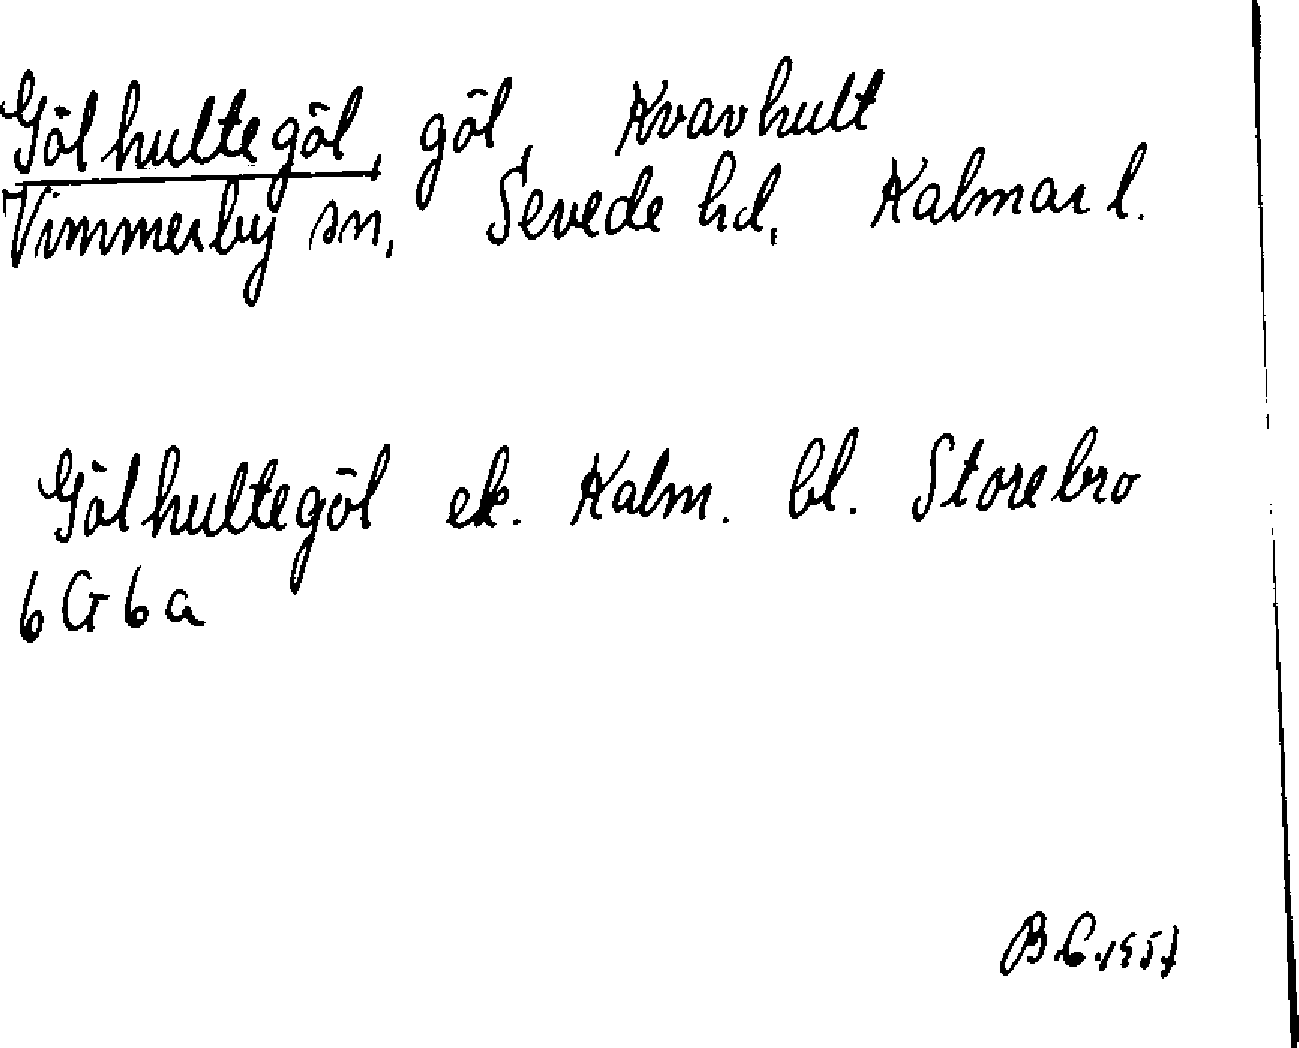 Gölhultegöl, göl, Kvavhult
Vimmerby sn, Sevede hd, Kalmar l.
Gölhultegöl ek. Kalm. bl. Storebro
6 G 6 a
B.C. 1957